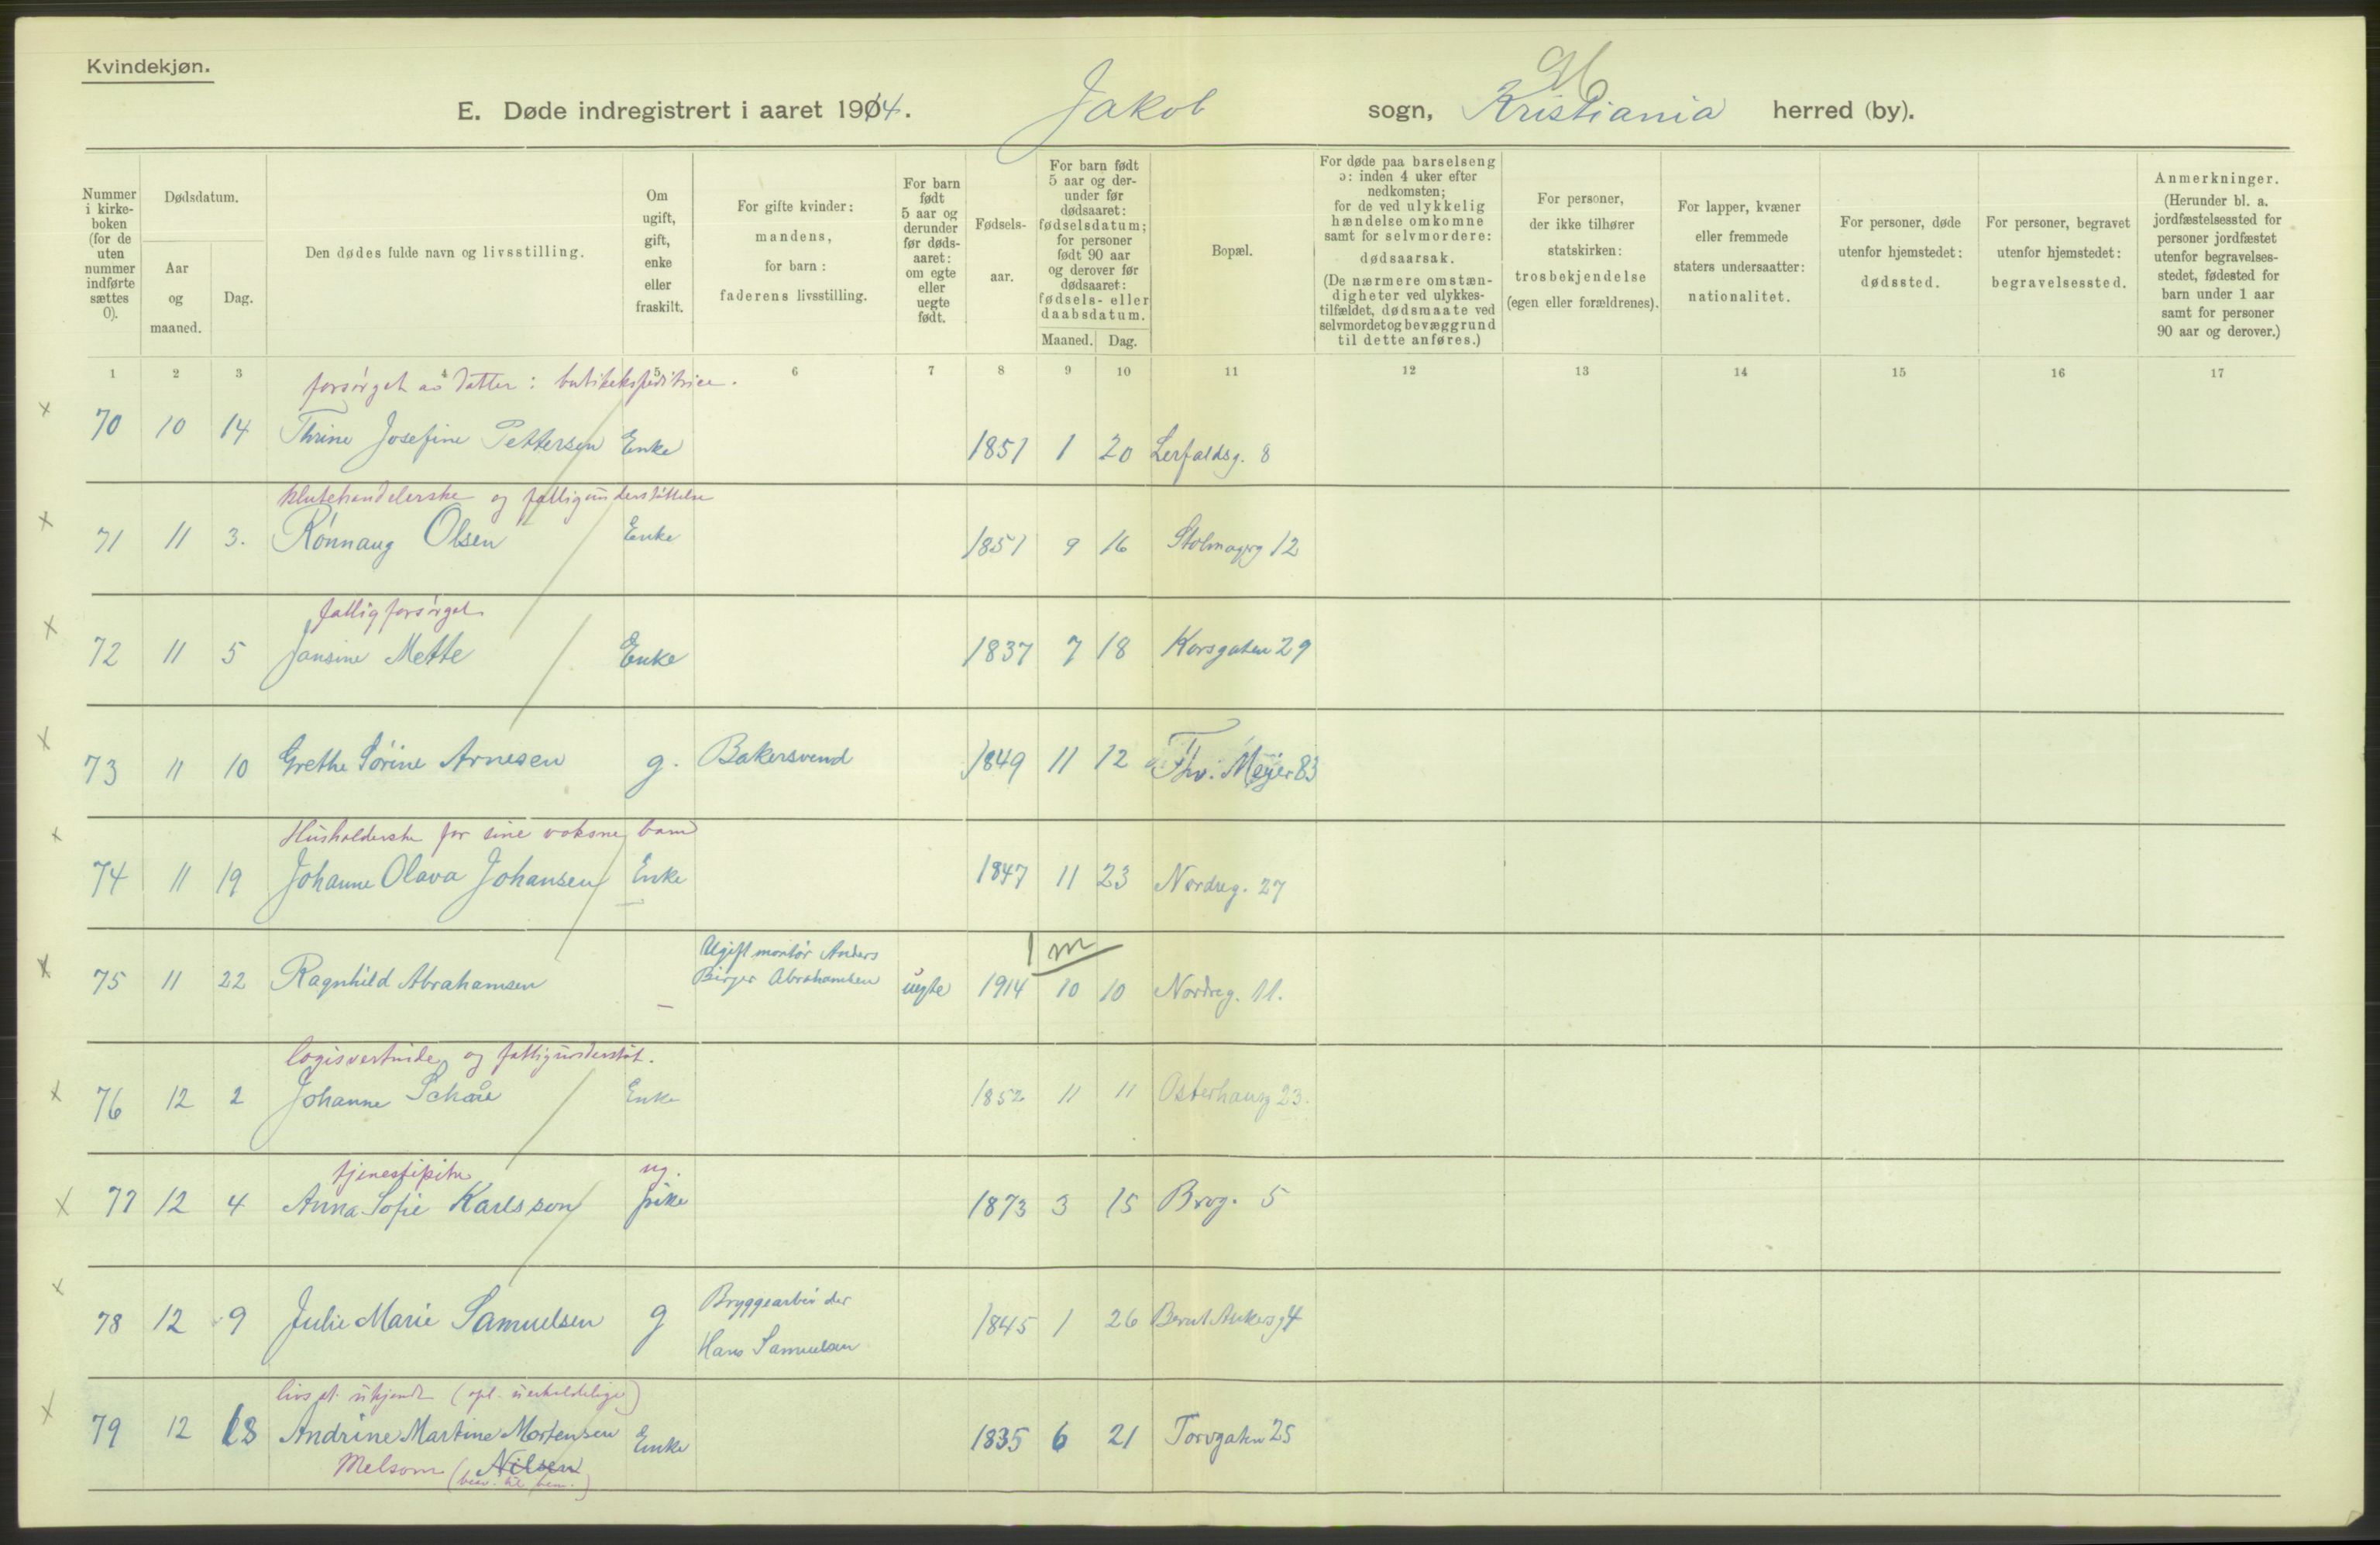 Kvindekjøn.
E. Døde indregistrert i aaret 1914. Jakob sogn, Kristiania herred (by).
Nummer i kirke-boken (for de uten nummer indførte sættes 0).
Dødsdatum.
Aar og maaned.
Dag.
Den dødes fulde navn og livsstilling.
Om ugift, gift, enke eller fraskilt.
For gifte kvinder: mandens, for barn: faderens livsstilling.
For barn født 5 aar og derunder før døds-aaret: om egte eller uegte født.
Fødsels-aar.
For barn født 5 aar og der-under før dødsaaret: fødselsdatum; for personer født 90 aar og derover før dødsaaret: fødsels- eller daabsdatum.
Maaned. Dag.
Bopæl.
For døde paa barselseng ɔ: inden 4 uker efter nedkomsten; for de ved ulykkelig hændelse omkomne samt for selvmordere: dødsaarsak. (De nærmere omstæn-digheter ved ulykkes-tilfældet, dødsmaate ved selvmordet og bevæggrund til dette anføres.)
For personer, der ikke tilhører statskirken: trosbekjendelse (egen eller forældrenes).
For lapper, kvæner eller fremmede staters undersaatter: nationalitet.
For personer, døde utenfor hjemstedet: dødssted.
For personer, begravet utenfor hjemstedet: begravelsessted.
Anmerkninger. (Herunder bl. a. jordfæstelsessted for personer jordfæstet utenfor begravelses-stedet, fødested for barn under 1 aar samt for personer 90 aar og derover.)
1 2 3 4 5 6 7 8 9 10 11 12 13 14 15 16 17
forsørget av datter: butikekspeditrice.
70 10 14 Thrine Josefine Pettersen Enke 1851 1 20 Lerfaldsg. 8
klutehandlerske og fattigunderstøttelse
71 11 3. Rønnaug Olsen Enke 1851 9 16 Stolmagerg 12
fattigforsørget
72 11 5 Jansine Mette Enke 1837 7 18 Korsgaten 29
73 11 10 Grethe Sørine Arnesen g. Bakersvend 1849 11 12 Thv. Meyer 83
Husholderske for sine voksne barn
74 11 19 Johanne Olava Johansen Enke 1847 11 23 Nordreg. 27
1 m
75 11 22 Ragnhild Abrahamsen — Ugift montør Anders Birger Abrahamsen uegte 1914 10 10 Nordreg. 11.
logisvertinde og fattigunderstøt.
76 12 2 Johanne Schåe Enke 1852 11 11 Osterhausg 23.
tjenestepike ug.
77 12 4 Anna Sofie Karlsson pike 1873 3 15 Brog. 5
78 12 9 Julie Marie Samuelsen g Bryggearbeider Hans Samuelsen 1845 1 26 Bernt Ankersg 4
livsst. ukjendt (opl. uerholdelige)
79 12 18 Andrine Martine Mortensen Enke 1835 6 21 Torvgaten 25
Melsom (Nilsen